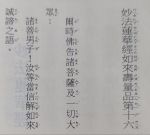 妙法蓮華經如來壽量品第十六
爾時佛告諸菩薩及一切大
眾：
諸善男子！汝等當信解如來
誠諦之語。